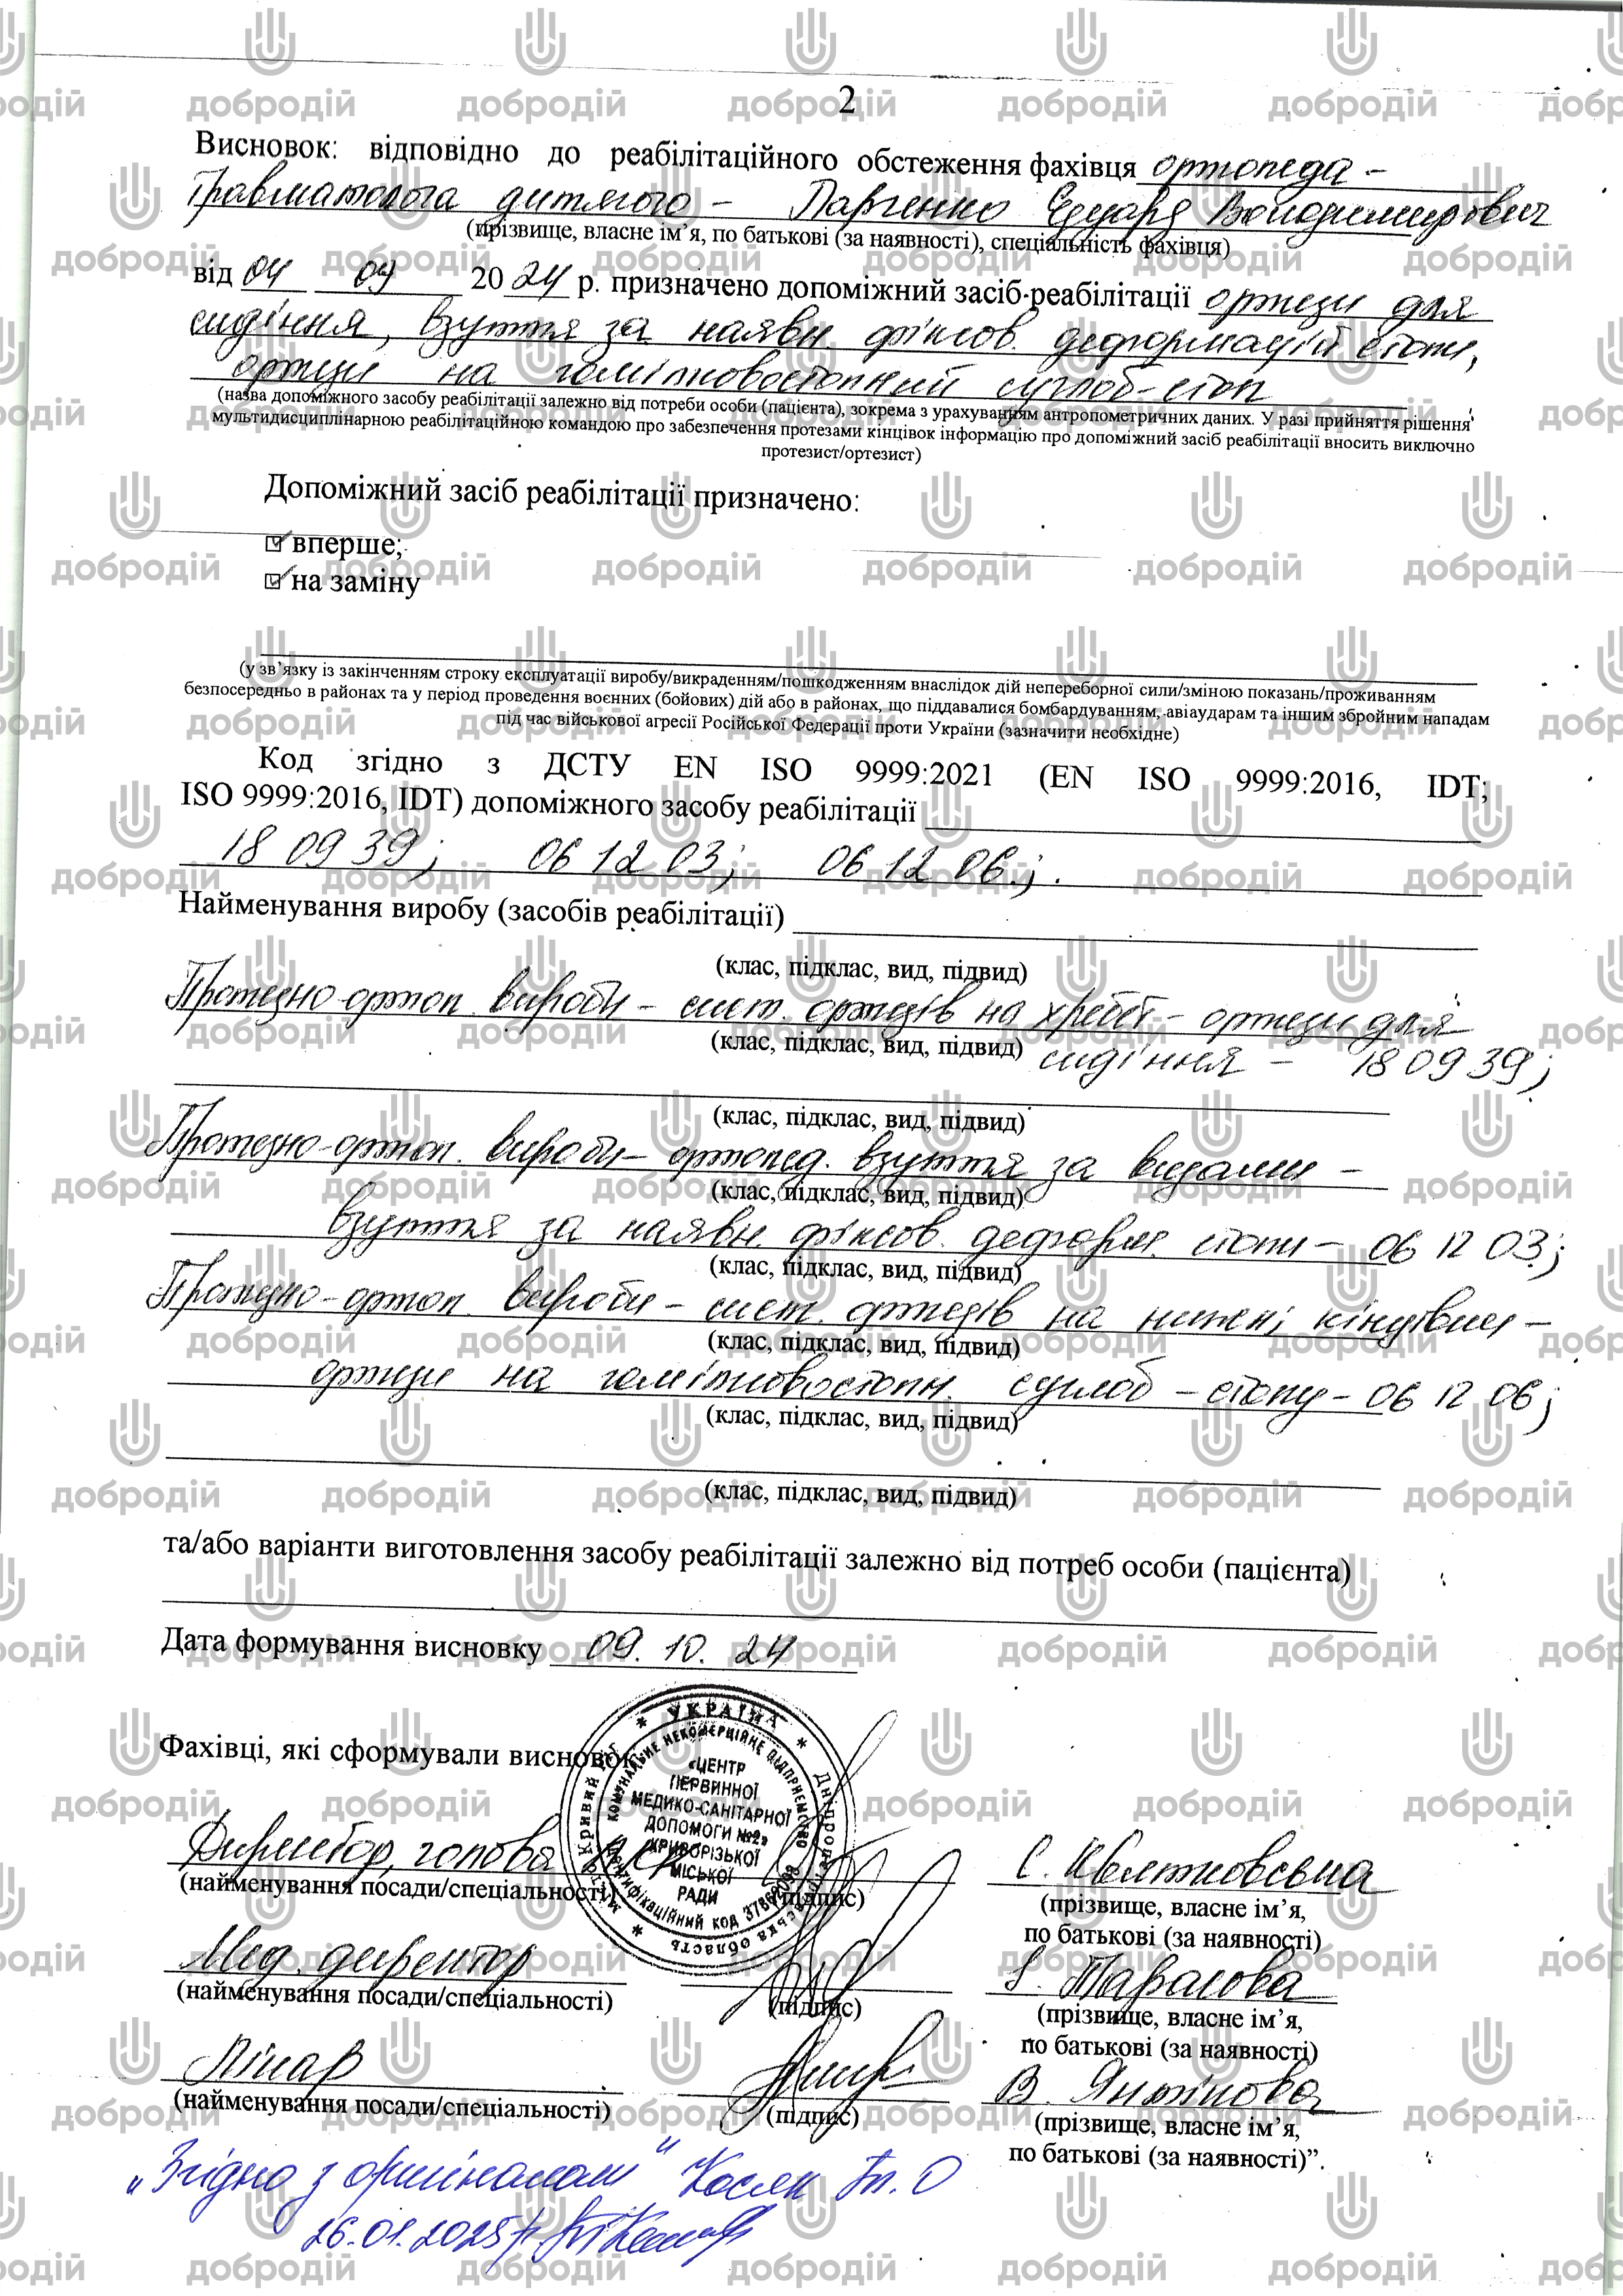 2
Висновок: відповідно до реабілітаційного обстеження фахівця ортопеда –
травматолога дитячого – Едуард Володимирович
(прізвище, власне ім’я, по батькові (за наявності), спеціальність фахівця)
від 04 09 2024 р. призначено допоміжний засіб реабілітації ортези для
сидіння, взуття за наявн. фіксов. деформацій стопи,
ортези на гомілковостопний суглоб-стоп
(назва допоміжного засобу реабілітації залежно від потреби особи (пацієнта), зокрема з урахуванням антропометричних даних. У разі прийняття рішення
мультидисциплінарною реабілітаційною командою про забезпечення протезами кінцівок інформацію про допоміжний засіб реабілітації вносить виключно
протезист/ортезист)
Допоміжний засіб реабілітації призначено:
вперше;
на заміну
(у зв’язку із закінченням строку експлуатації виробу/викраденням/пошкодженням внаслідок дій непереборної сили/зміною показань/проживанням
безпосередньо в районах та у період проведення воєнних (бойових) дій або в районах, що піддавалися бомбардуванням, авіаударам та іншим збройним нападам
під час військової агресії Російської Федерації проти України (зазначити необхідне)
Код згідно з ДСТУ EN ISO 9999:2021 (EN ISO 9999:2016, IDT;
ISO 9999:2016, IDT) допоміжного засобу реабілітації
18 09 39; 06 12 03; 06 12 06.;.
Найменування виробу (засобів реабілітації)
(клас, підклас, вид, підвид)
Протезно-ортоп. вироби – сист. ортезів на хребет – ортези для
(клас, підклас, вид, підвид) сидіння – 18 09 39;
(клас, підклас, вид, підвид)
Протезно-ортоп. вироби – ортопед. взуття за видами –
(клас, підклас, вид, підвид)
взуття за наявн. фіксов. деформ. стопи – 06 12 03;
(клас, підклас, вид, підвид)
Протезно-ортоп. вироби – сист. ортезів на нижні кінцівки –
(клас, підклас, вид, підвид)
ортези на гомілковостопн. суглоб – стопу – 06 12 06;
(клас, підклас, вид, підвид)
(клас, підклас, вид, підвид)
та/або варіанти виготовлення засобу реабілітації залежно від потреб особи (пацієнта)
Дата формування висновку 09. 10. 24
Фахівці, які сформували висновок:
УКРАЇНА
Дніпропетровська область
місто Кривий Ріг
КОМУНАЛЬНЕ НЕКОМЕРЦІЙНЕ ПІДПРИЄМСТВО
«ЦЕНТР
ПЕРВИННОЇ
МЕДИКО-САНІТАРНОЇ
ДОПОМОГИ №2»
КРИВОРІЗЬКОЇ
МІСЬКОЇ
РАДИ
Ідентифікаційний код
Директор, голова С. Квятковська
(найменування посади/спеціальності) (підпис) (прізвище, власне ім’я,
по батькові (за наявності)
Мед. директор Тарасова
(найменування посади/спеціальності) (підпис) (прізвище, власне ім’я,
по батькові (за наявності)
Лікар В.
(найменування посади/спеціальності) (підпис) (прізвище, власне ім’я,
по батькові (за наявності)”.
„Згідно з оригіналом“ Косяк
26.01.2025 р
добродій